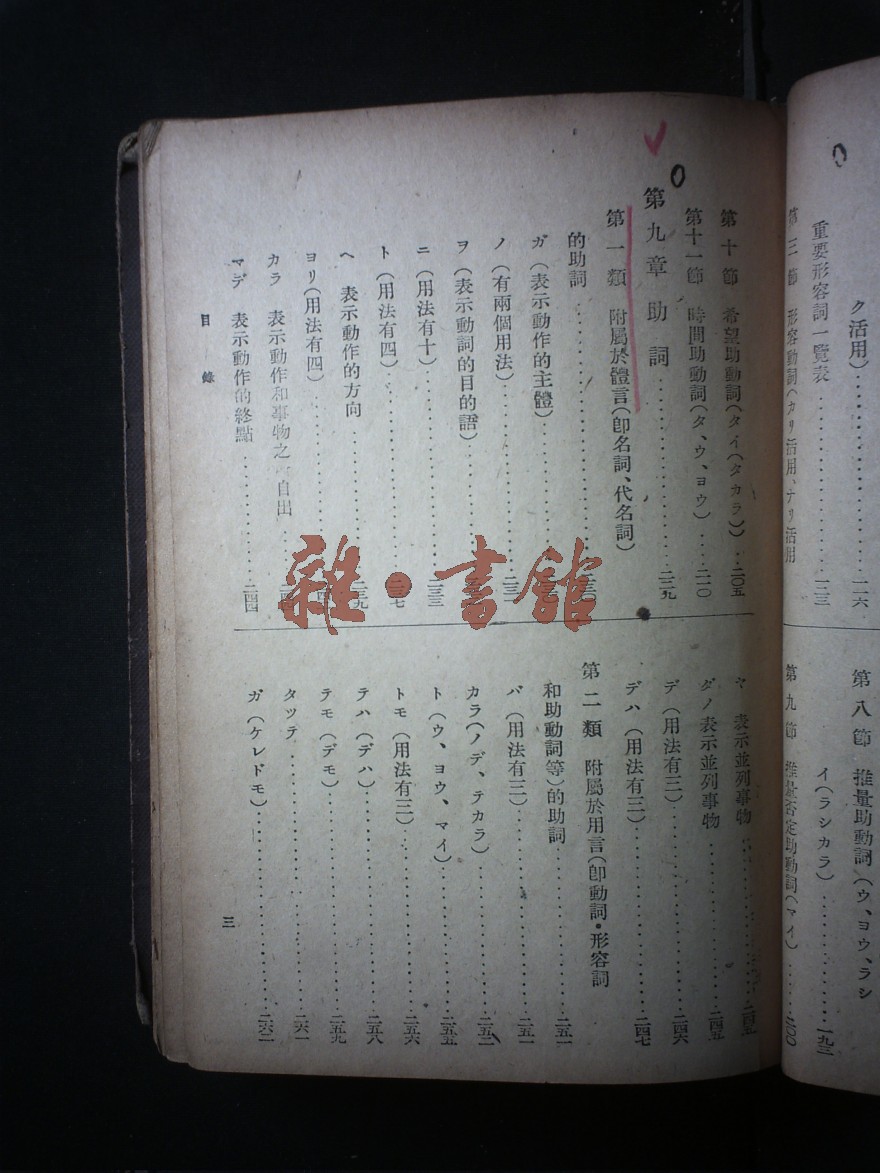 ク活用)……一一六
重要形容詞一覽表……一二三
第三節 形容動詞(カリ活用、ナリ活用
第八節 推量助動詞(ウ、ヨウ、ラシ
イ(ラシカラ)……一九三
第九節 推量否定助動詞(マイ)……二〇〇
第十節 希望助動詞(タイ(タカラ))……二〇五
第十一節 時間助動詞(タ、ウ、ヨウ)……二一〇
第九章 助詞……二二九
第一類 附屬於體言(卽名詞、代名詞)
的助詞……
ガ(表示動作的主體)……
ノ(有兩個用法)……二三一
ヲ(表示動詞的目的語)……
ニ(用法有十)……二三三
ト(用法有四)……二三七
ヘ 表示動作的方向……二三九
ヨリ(用法有四)……
カラ 表示動作和事物之 自出……
マデ 表示動作的終點……二四四
ヤ 表示並列事物……二四五
ダノ表示並列事物……二四五
デ(用法有三)……二四六
デハ(用法有三)……二四七
第二類 附屬於用言(卽動詞・形容詞
和助動詞等)的助詞……二五一
バ(用法有三)……二五一
カラ(ノデ、テカラ)……二五二
ト(ウ、ヨウ、マイ)……二五五
トモ(用法有三)……二五六
テハ(デハ)……二五八
テモ(デモ)……二五九
タツテ……二六一
ガ(ケレドモ)……二六二
目錄
三
雜・書館